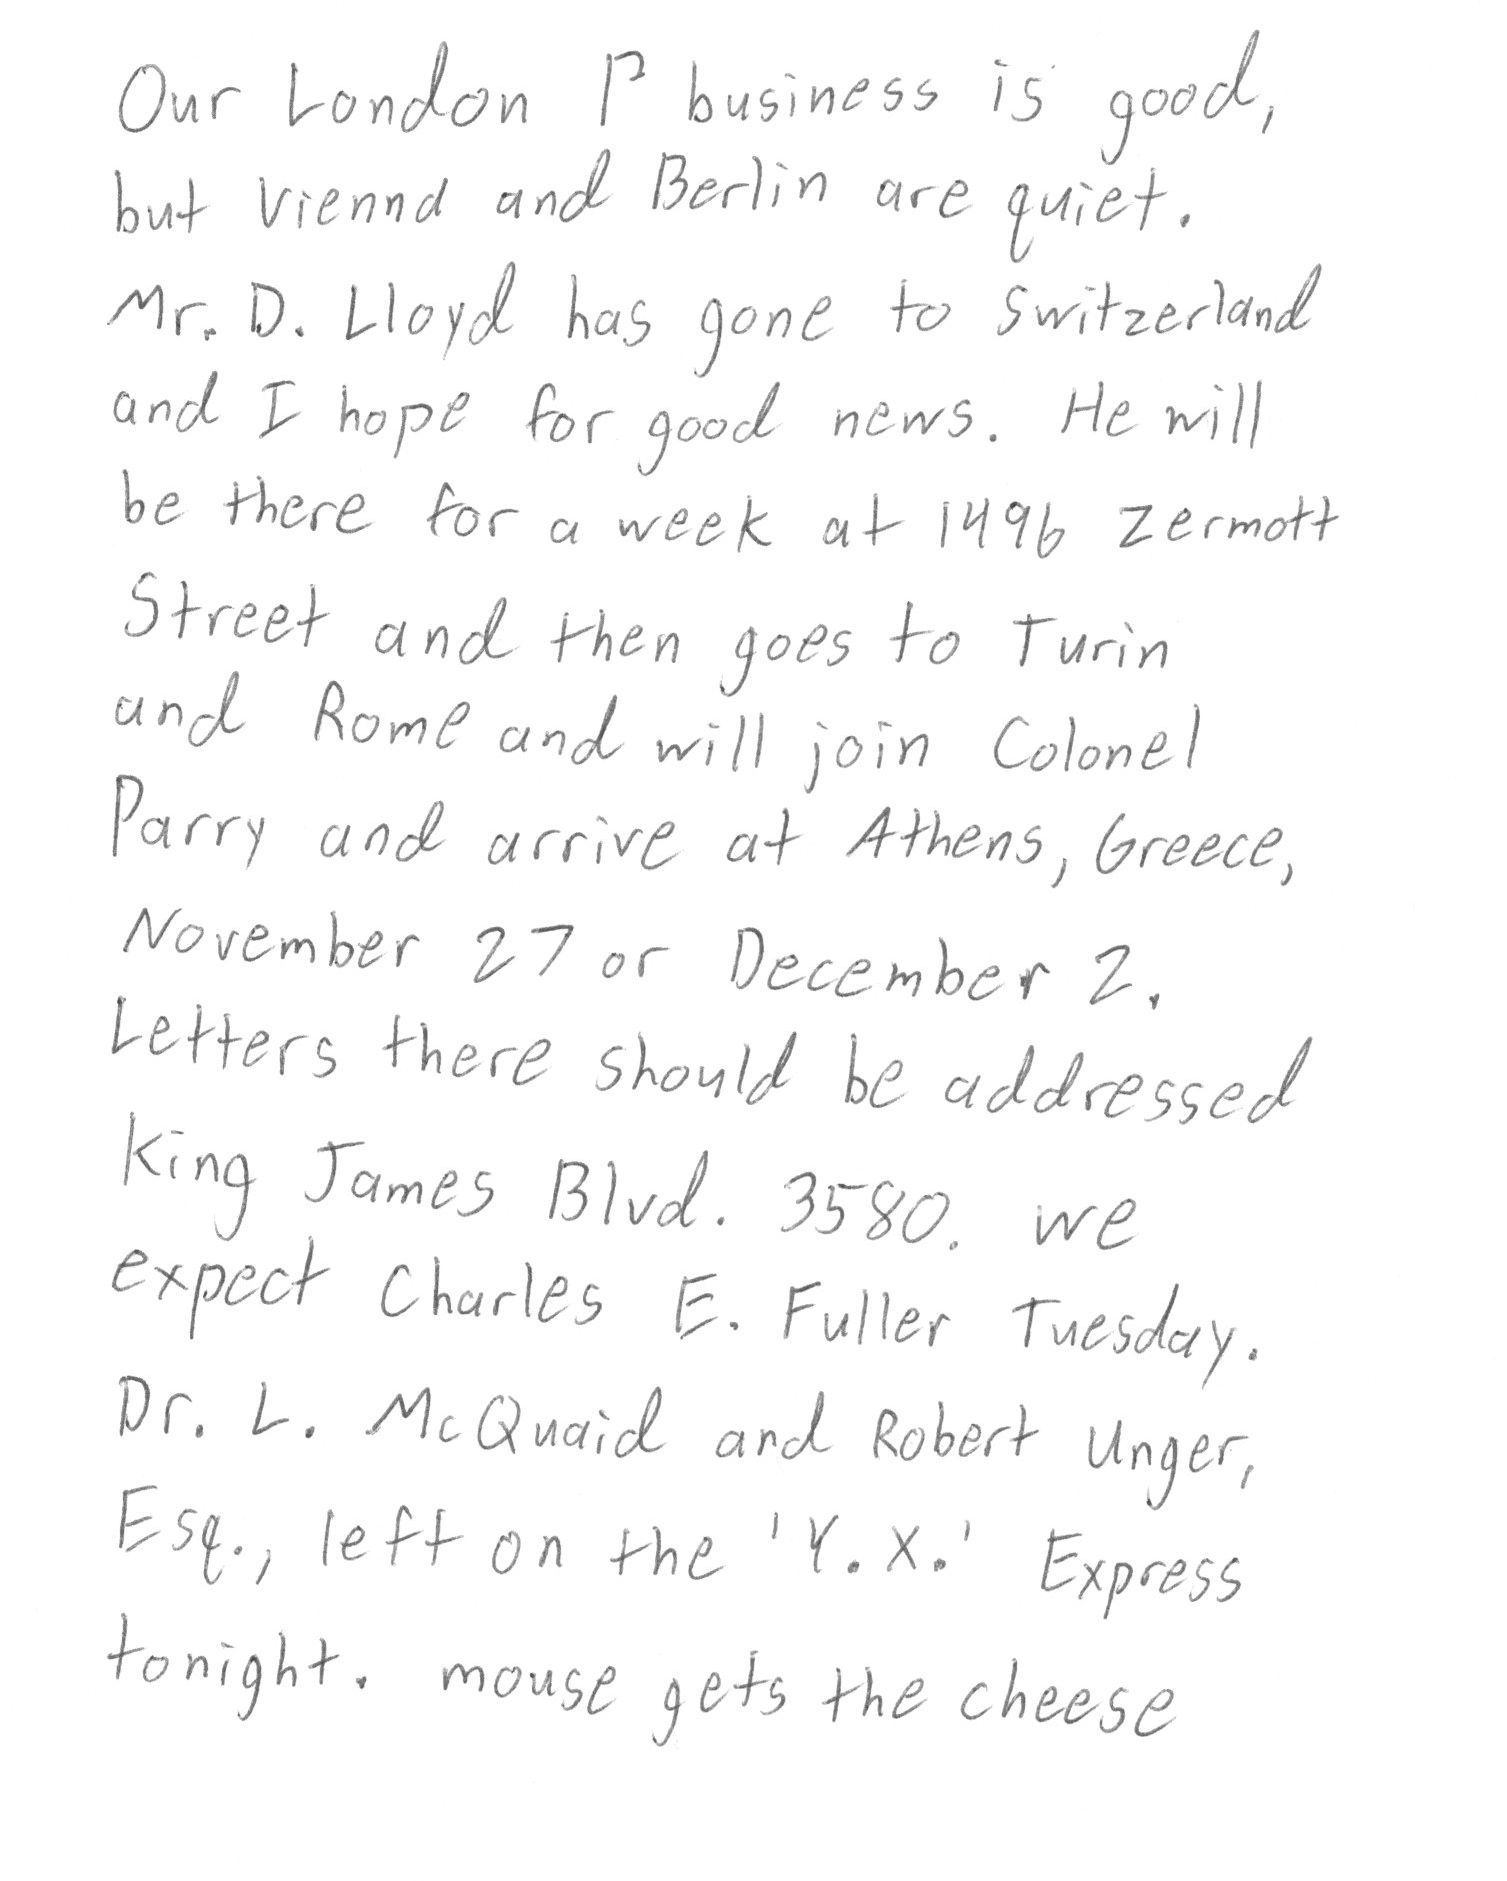 Our London P business is good,
but Viennd and Berlin are quiet.
Mr. D. Lloyd has gone to Switzerland
and I hope for good news. He will
be there for a week at 1496 Zermott
Street and then goes to Turin
and Rome and will join Colonel
Parry and arrive at Athens, Greece,
November 27 or December 2.
Letters there should be addressed
King James Blvd. 3580. we
expect Charles E. Fuller Tuesday.
Dr. L. McQuaid and Robert Unger,
Esq., left on the 'Y.X.' Express
tonight. mouse gets the cheese